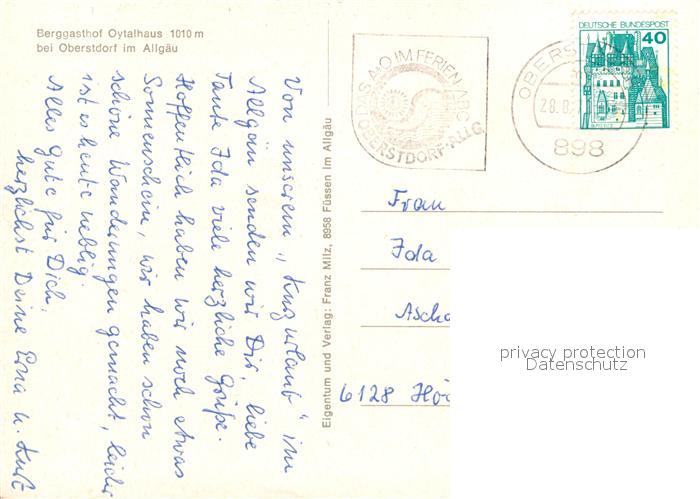 Berggasthof Oytalhaus 1010 m
bei Oberstdorf im Allgäu
Von unserem „Kurzurlaub" im
Allgäu senden wir Dir, liebe
Tante Ida viele herzliche Grüße.
Hoffentlich haben wir noch etwas
Sonnenschein, wir haben schon
schöne Wanderungen gemacht, leider
ist es heute neblig.
Alles Gute für Dich,
herzlichst Deine Erna u. Kurt
Eigentum und Verlag: Franz Milz, 8958 Füssen im Allgäu
DAS A·O IM FERIEN-ABC
OBERSTDORF-ALLG.
OBERS
28.8.
898
DEUTSCHE BUNDESPOST
40
Frau
Ida
Asch
6128 Hö
privacy protection
Datenschutz